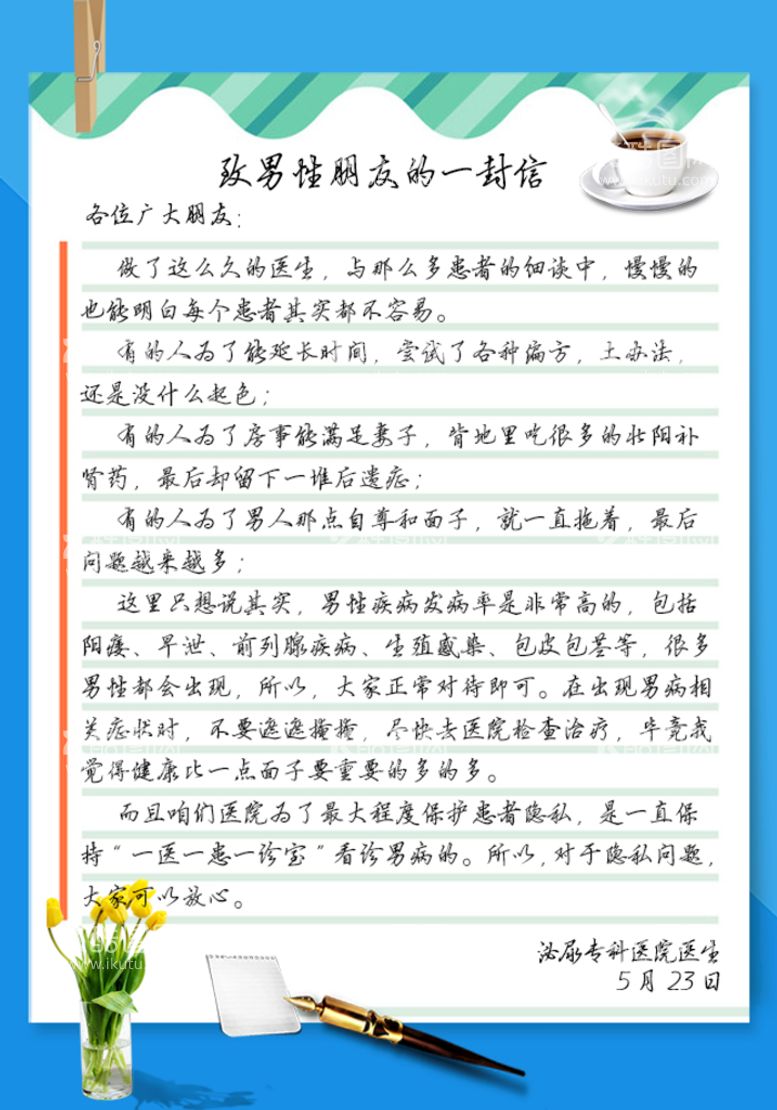 致男性朋友的一封信
各位广大朋友：
做了这么久的医生，与那么多患者的细谈中，慢慢的
也能明白每个患者其实都不容易。
有的人为了能延长时间，尝试了各种偏方，土办法，
还是没什么起色；
有的人为了房事能满足妻子，背地里吃很多的壮阳补
肾药，最后却留下一堆后遗症；
有的人为了男人那点自尊和面子，就一直拖着，最后
问题越来越多；
这里只想说其实，男性疾病发病率是非常高的，包括
阳痿、早泄、前列腺疾病、生殖感染、包皮包茎等，很多
男性都会出现，所以，大家正常对待即可。在出现男病相
关症状时，不要遮遮掩掩，尽快去医院检查治疗，毕竟我
觉得健康比一点面子要重要的多的多。
而且咱们医院为了最大程度保护患者隐私，是一直保
持“一医一患一诊室”看诊男病的。所以，对于隐私问题，
大家可以放心。
泌尿专科医院医生
5月23日
www.ikutu.com
www.ikutu.com